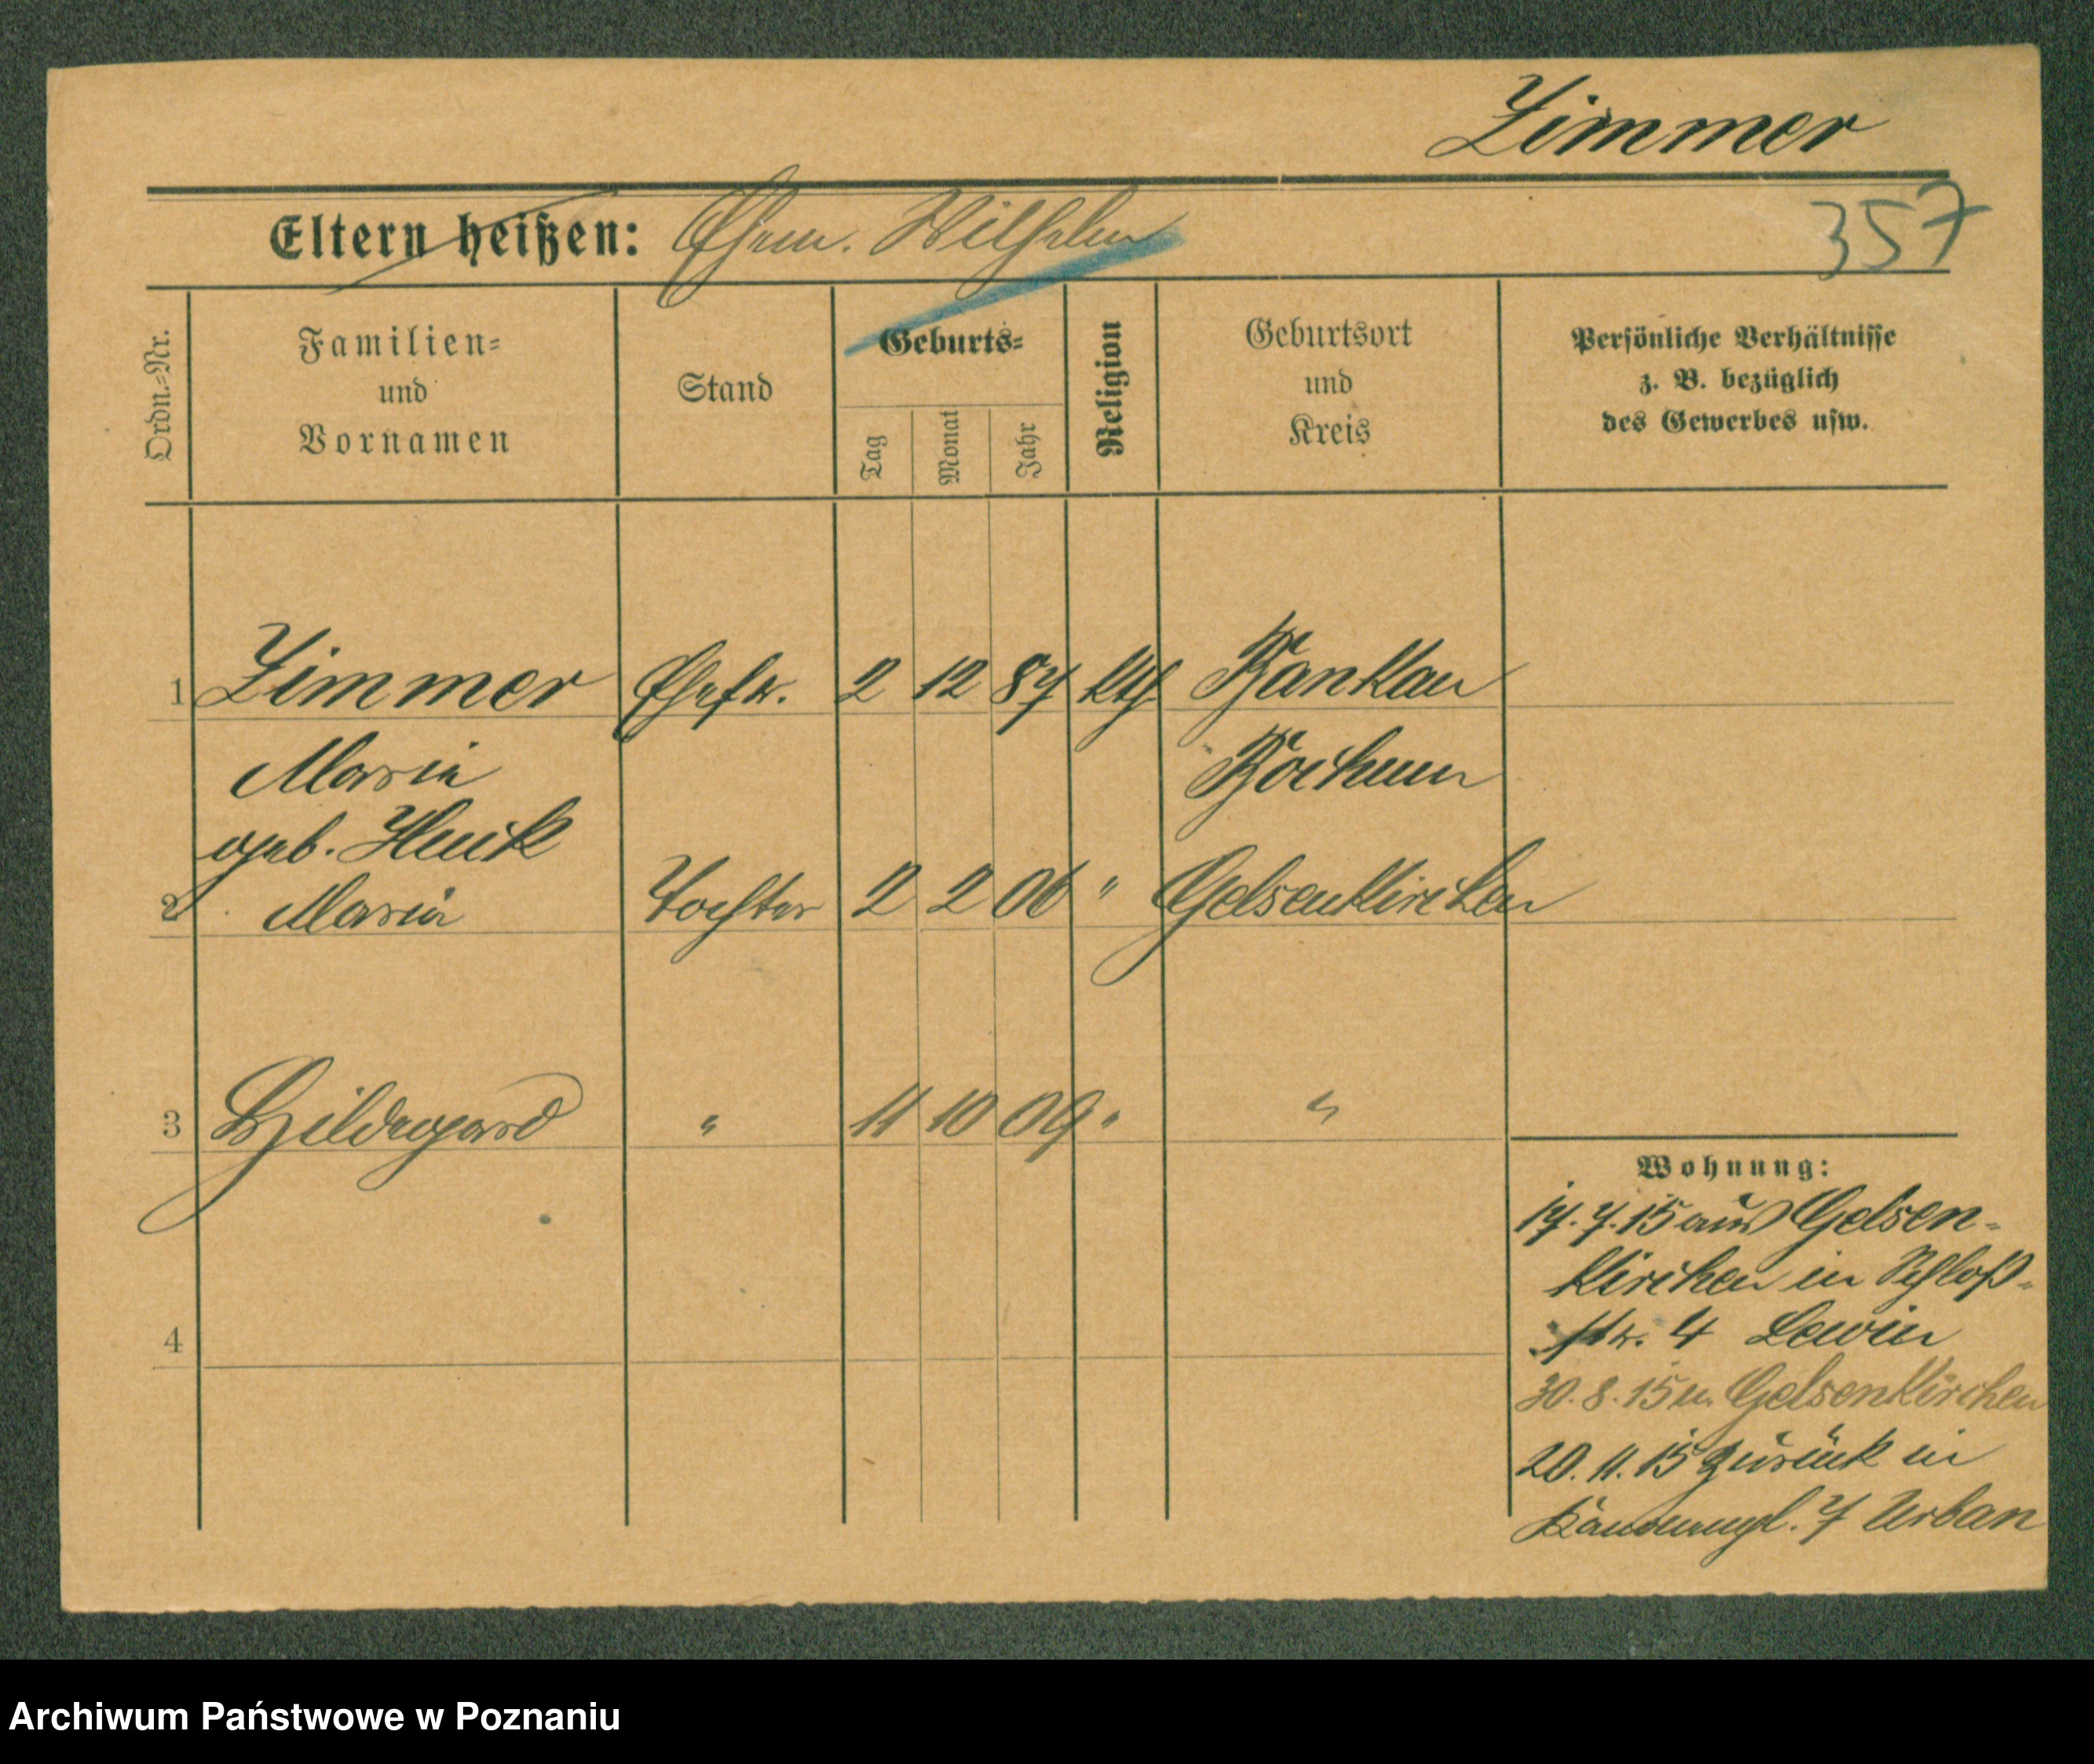 Zimmer
Eltern heißen: Ehem. Wilhelm
357
Ordn.=Nr.
Familien=
und
Vornamen
Stand
Geburts=
Tag
Monat
Jahr
Religion
Geburtsort
und
Kreis
Persönliche Verhältnisse
z. B. bezüglich
des Gewerbes usw.
1 Zimmer Ehefr. 2 12 87 kth Bankau
Maria Bochum
geb. Huik
2 Maria Tochter 2 2 06 " Gelsenkirchen
3 Hildegard " 11 10 09 " "
4
Wohnung:
17.7.15 aus Gelsen-
kirchen in Schloß-
str. 4 Lewin
30.8.15 n. Gelsenkirchen
20.11.15 zurück in
7 Urban
Archiwum Państwowe w Poznaniu